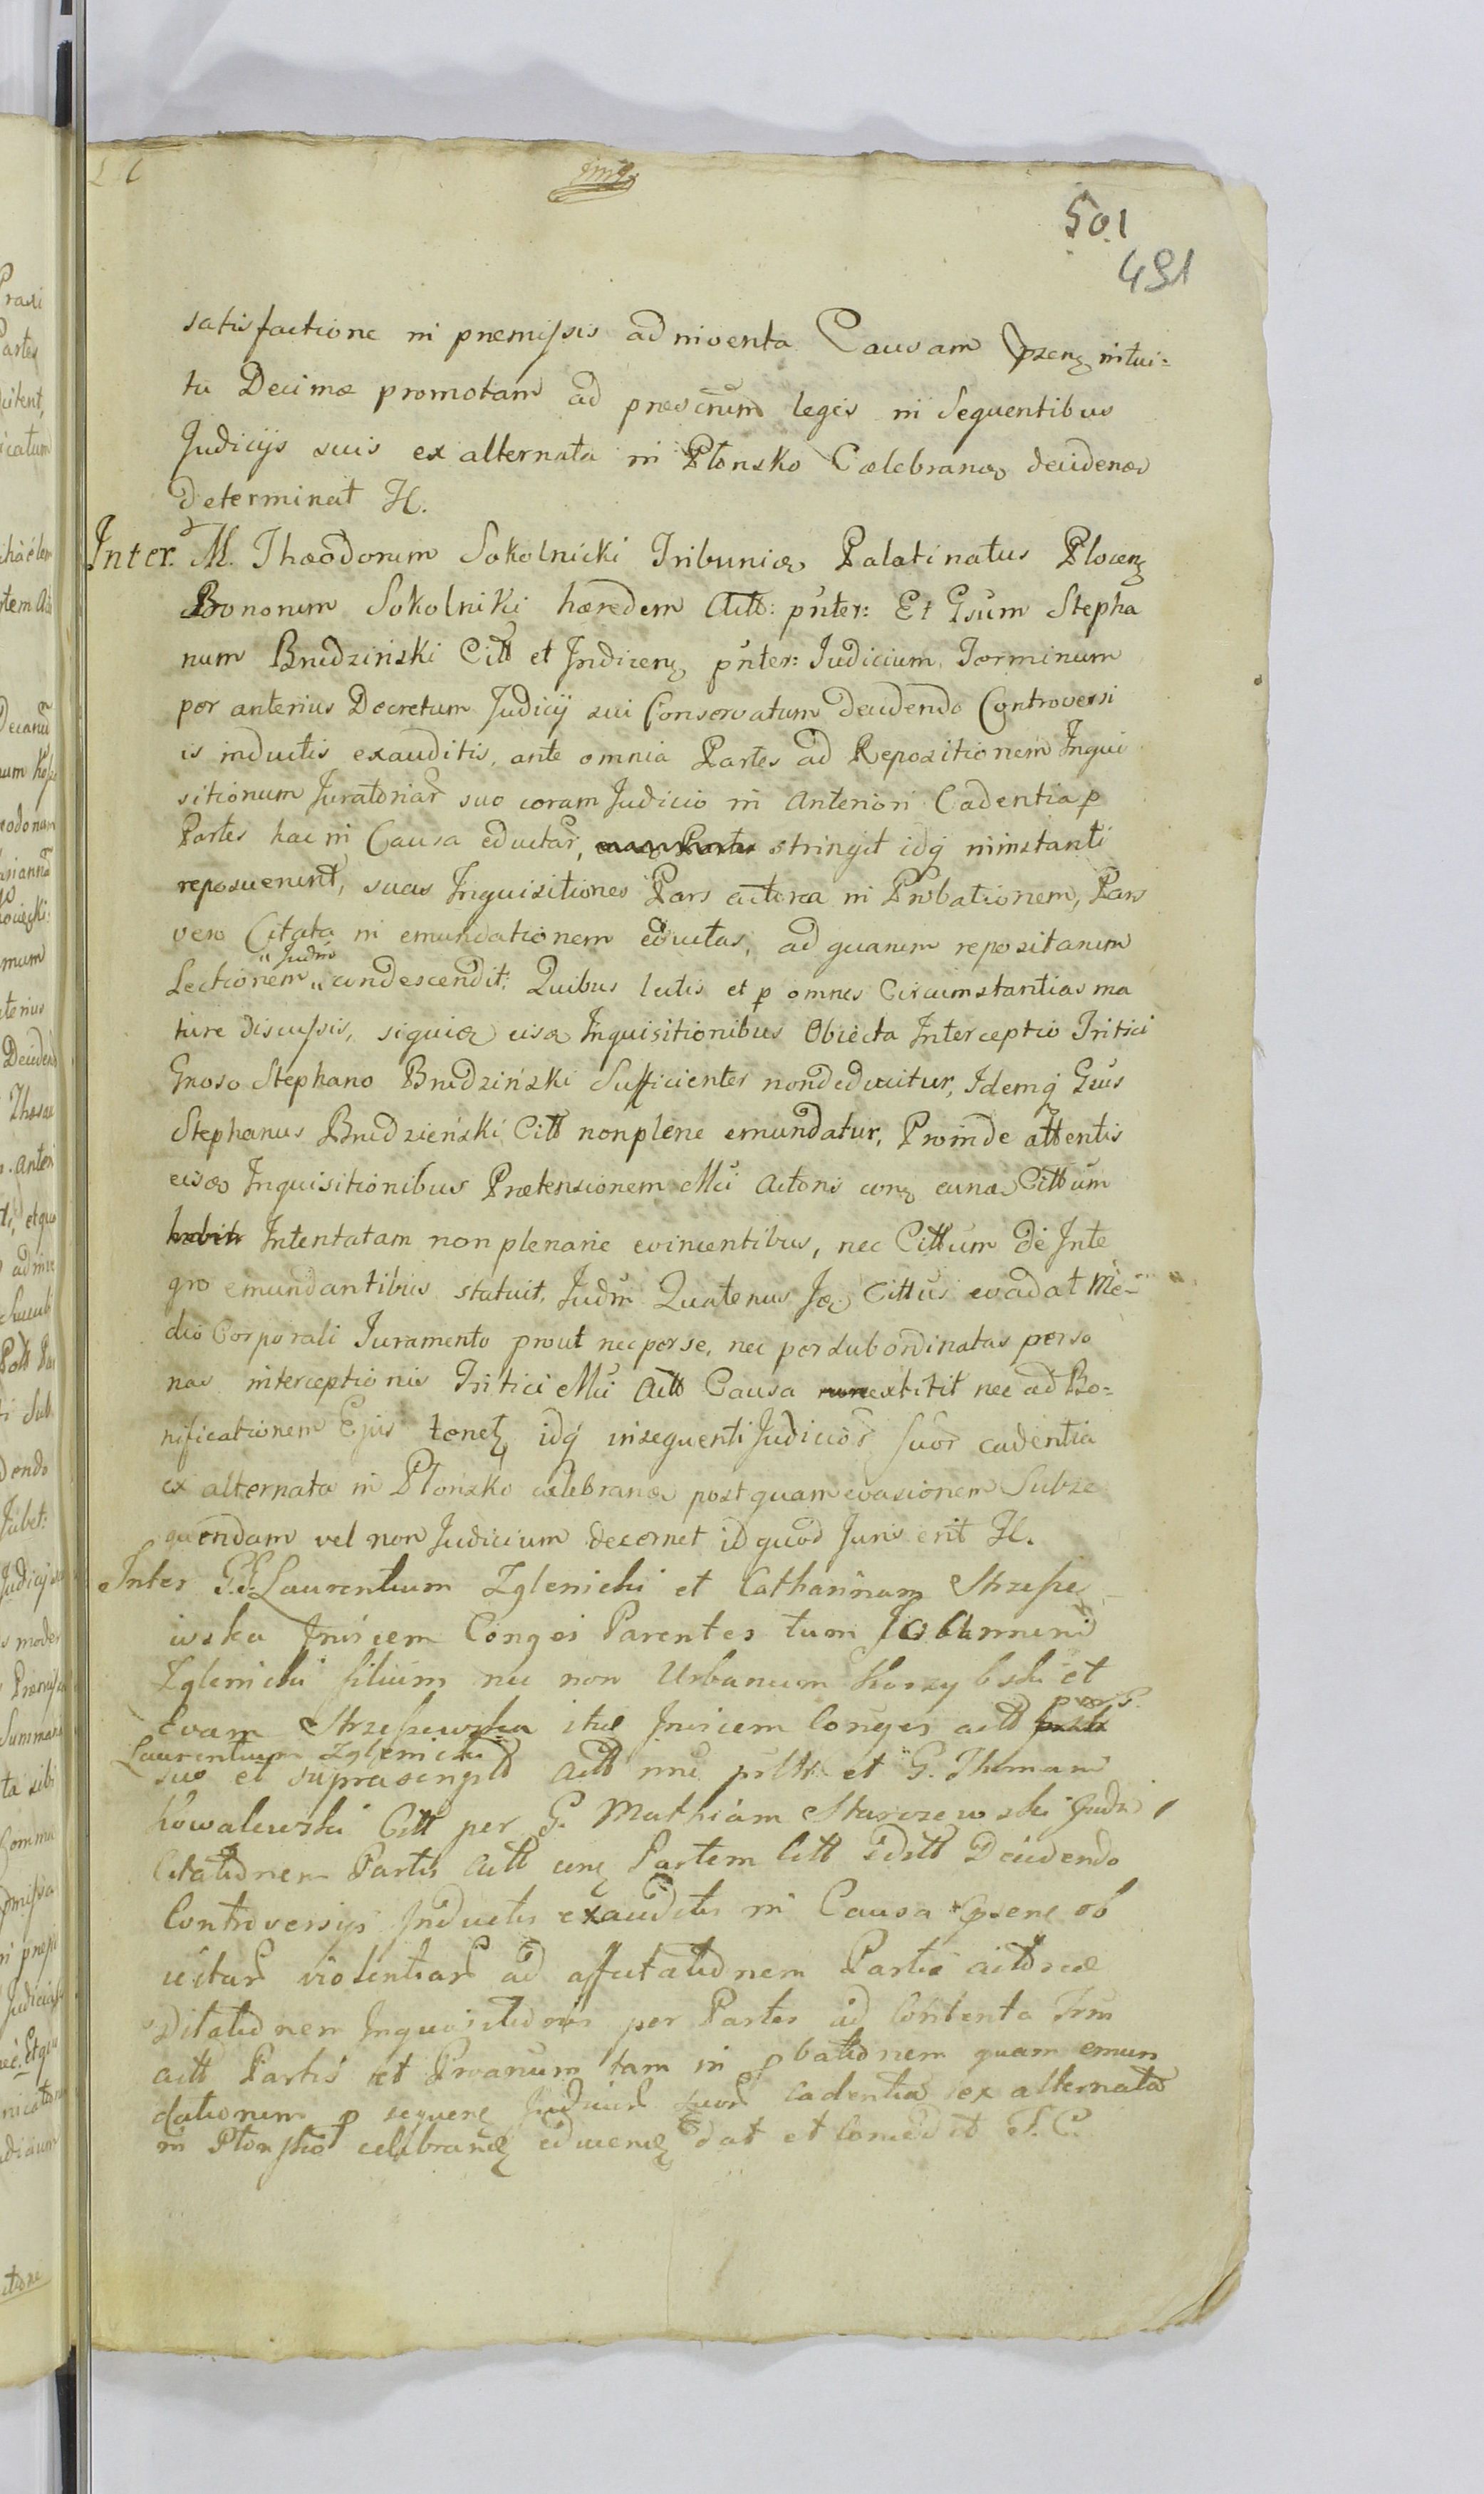 501
491
satisfactione in praemissis adinventa Causam praens intui=
tu Decimae promotam ad praescrum legis in Sequentibus
Judicijs suis ex alternata in Płonsko Caelebranas decidenas
determinat H.
Inter. M. Thaeodorum Sokolnicki Tribunias Palatinatus Plocens
Bonorum Sokolniki haeredem Actt: pnter: Et Gsum Stepha
num Brudziński Citt et Indicens pnter: Judicium Terminum
per anterius Decretum Judicij sui Conservatum decidendo Controversi
is inductis exauditis, ante omnia Partes ad Repositionem Inqui
sitionum Juratoriar suo coram Judicio in Anteriori Cadentia p
Partes hac in Causa eductar, stringit idq inimstanti
reposuerunt, suas Inquisitiones Pars actorea in Probationem, Pars
vero Citata in emundationem eductas, ad quarum repositarum
Lectionem " Judm " condescendit: Quibus lectis et p omnes Circumstantias ma
ture discussis, siquidem eisdem Inquisitionibus Obiecta Interceptio Tritici
Gnoso Stephano Brudziński Sufficienter non deducitur, Idemq Gsus
Stephanus Brudzieński Citt non plene emundatur, Proinde attentis
eisdem Inquisitionibus Praetensionem Mci Actoris cons eundem Cittum
Intentatam non plenarie evincentibus, nec Cittum de Inte
gro emundantibus statuit, Judm Quatenus Idem Cittus evadat Me-
dio Corporali Juramento prout nec per se, nec per subordinatas perso
nas interceptionis Tritici Mci Actt Causa extitit nec ad Bo=
nificationem Ejus tenet, idq insequenti Judicior suor cadentia
ex alternata in Płonsko celebranas post quam evasionem Subse
quendam vel non Judicium decernet id quod Juris erit H.
Inter G.G. Laurentium Zglenicki et Catharinam Strzesze
wska Invicem Conges Parentes tum Joannem
Zglenicki filium nec non Urbanum Korzybski et
Evam Strzeszewska itid Invicem Conges actt
Laurentium Zglenicki
suo et suprascriptt actt nne pntt et G. Thomam
Kowalewski Citt per G. Mathiam Starczewski
Citationem Partis actt cons Partem Citt Editt Decidendo
Controversijs Inductis exauditis in Causa praesene ob
ictar violentiar ad affectationem Partis actoreae
Ditationem Inquisitionis per Partes ad Contenta Trm
actt Partis et Prvarum tam in pbationem quam emun
dationem p sequens Judicior suor Cadentia ex alternata
in Płonsko celebrans educens dat et Concedit T.C.